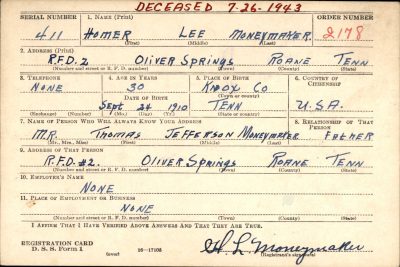 DECEASED 7-26-1943
SERIAL NUMBER 1. NAME (Print) ORDER NUMBER
411 HOMER LEE MONEYMAKER 2178
(First) (Middle) (Last)
2. ADDRESS (Print)
R.F.D. 2 OLIVER SPRINGS ROANE TENN
(Number and street or R. F. D. number) (Town) (County) (State)
3. TELEPHONE 4. AGE IN YEARS 5. PLACE OF BIRTH 6. COUNTRY OF CITIZENSHIP
NONE 30 KNOX CO
DATE OF BIRTH (Town or county)
Sept 24 1910 TENN U.S.A.
(Exchange) (Number) (Mo.) (Day) (Yr.) (State or country)
7. NAME OF PERSON WHO WILL ALWAYS KNOW YOUR ADDRESS 8. RELATIONSHIP OF THAT PERSON
MR. THOMAS JEFFERSON MONEYMAKER FATHER
(Mr., Mrs., Miss) (First) (Middle) (Last)
9. ADDRESS OF THAT PERSON
R.F.D. #2. OLIVER SPRINGS ROANE TENN
(Number and street or R. F. D. number) (Town) (County) (State)
10. EMPLOYER'S NAME
NONE
11. PLACE OF EMPLOYMENT OR BUSINESS
NONE
(Number and street or R. F. D. number) (Town) (County) (State)
I AFFIRM THAT I HAVE VERIFIED ABOVE ANSWERS AND THAT THEY ARE TRUE.
REGISTRATION CARD
D. S. S. Form 1 (over) 16-17105 H L Moneymaker
(Registrant's signature)